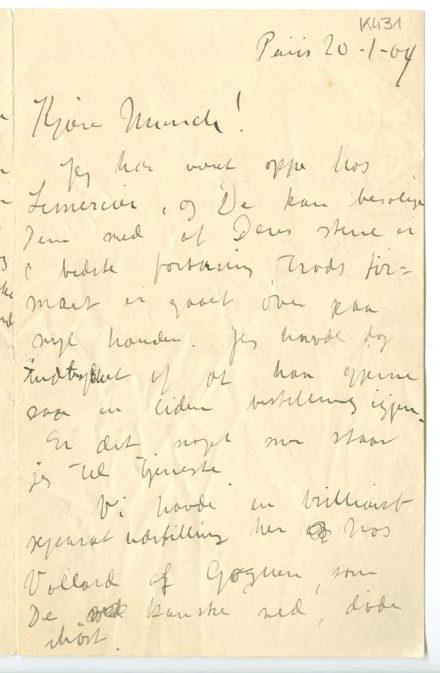 K431
Paris 20-1-04
Kjære Munch!
Jeg har vært oppe hos
Lemercier, og De kan berolige
Dem med at Deres stene er
i bedste forvaring trods fir=
maet er gaaet over paa
nye hænder. Jeg havde dog
indtrykket af at han gjerne
saa en liden bestilling igjen.
Er det noget mer staar
jeg til tjeneste.
Vi havde en brilliant
separat udstilling her hos
Vollard af Goguen, som
De kanske ved, døde
ihøst.